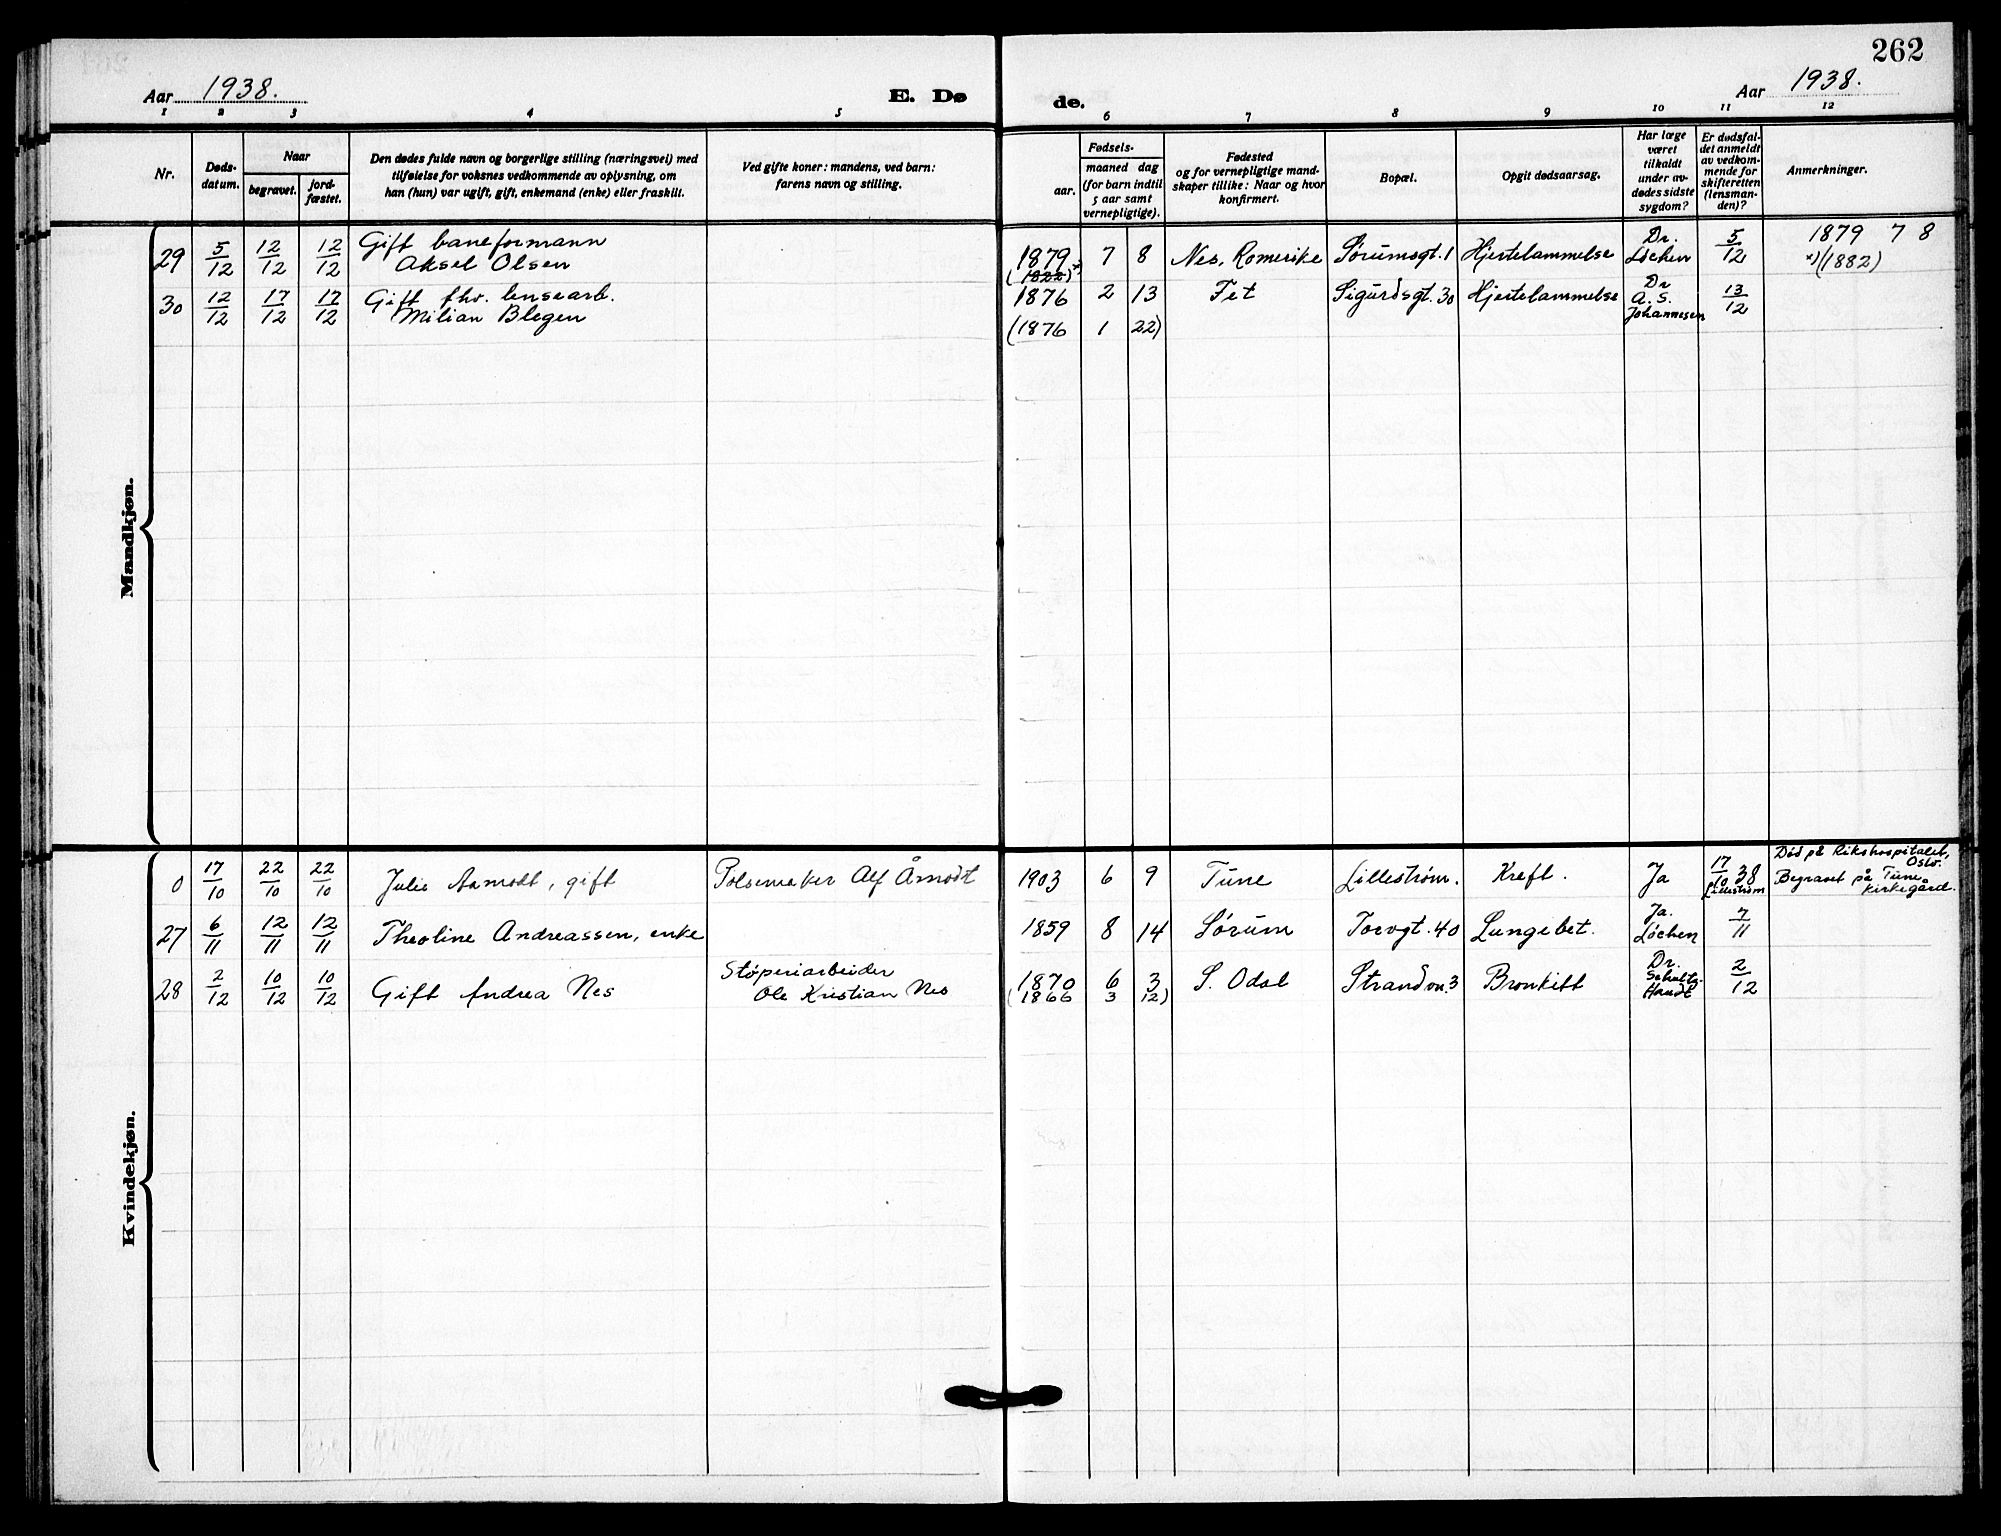 262
Aar 1938. E. Dø de. Aar 1938.
1 2 3 4 5 6 7 8 9 10 11 12
Nr.
Døds-
datum.
Naar
begravet.
jord-
fæstet.
Den dødes fulde navn og borgerlige stilling (næringsvei) med
tilføielse for voksnes vedkommende av oplysning, om
han (hun) var ugift, gift, enkemand (enke) eller fraskilt.
Ved gifte koner: mandens, ved barn:
farens navn og stilling.
Fødsels-
aar.
maaned dag
(for barn indtil
5 aar samt
vernepligtige).
Fødested
og for vernepligtige mand-
skaper tillike: Naar og hvor
konfirmert.
Bopæl.
Opgit dødsaarsag.
Har læge
været
tilkaldt
under av-
dødes sidste
sygdom?
Er dødsfal-
det anmeldt
av vedkom-
mende for
skifteretten
(lensman-
den)?
Anmerkninger.
Mandkjøn.
29 5/12 12/12 12/12 Gift baneformann
Aksel Olsen
1879 7 8 Nes, Romerike Sørumsgt. 1 Hjertelammelse Dr.
Løchen 5/12 1879 7 8
(1822)*) *)(1882)
30 12/12 17/12 17/12 Gift fhv. lensearb.
Milian Blegen
1876 2 13 Fet Sigurdsgt. 30 Hjertelammelse Dr
A. S.
Johannesen 13/12
(1876 1 22)
Kvindekjøn.
0 17/10 22/10 22/10 Julie Aamodt, gift Pølsemaker Alf Åmodt 1903 6 9 Tune Lillestrøm. Kreft. Ja 17/10 38
Lillestrøm
Død på Rikshospitalet,
Oslo.
Begravet på Tune
kirkegård.
27 6/11 12/11 12/11 Theoline Andreassen, enke 1859 8 14 Sørum Torvgt. 40 Lungebet. Ja.
Løchen 7/11
28 2/12 10/12 10/12 Gift Andrea Nes Støperiarbeider
Ole Kristian Nes
1870 6 3 S. Odal Strandvn. 3 Bronkitt Dr.
Schultz-
Haudt 2/12
(1866 3 12)